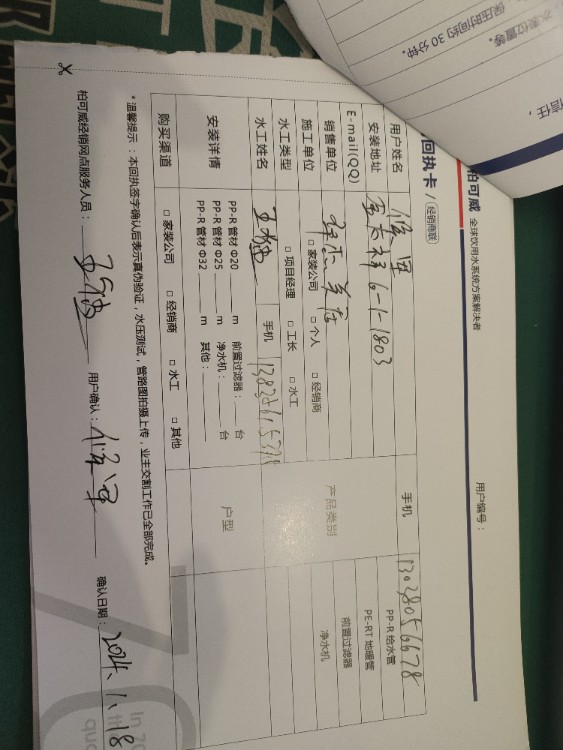 保压时间约30分钟。
水表位置等。
信任，
柏可威 全球饮用水系统方案解决者
用户编号：
回执卡 经销商联
用户姓名 手机 13028056678
安装地址 6-1-1803 PP-R 给水管
E-mail(QQ) PE-RT 地暖管
销售单位 产品类别 前置过滤器
施工单位 □ 家装公司 □ 个人 □ 经销商 净水机
水工类型 □ 项目经理 □ 工长 □ 水工
水工姓名 手机
安装详情 PP-R 管材 Φ20 m 前置过滤器： 台 户型
PP-R 管材 Φ25 m 净水机： 台
PP-R 管材 Φ32 m 其他：
购买渠道 □ 家装公司 □ 经销商 □ 水工 □ 其他
*温馨提示：本回执签字确认后表示真伪验证，水压测试，管路图拍摄上传，业主交割工作已全部完成。
柏可威经销网点服务人员： 用户确认： 确认日期：2024.1.18